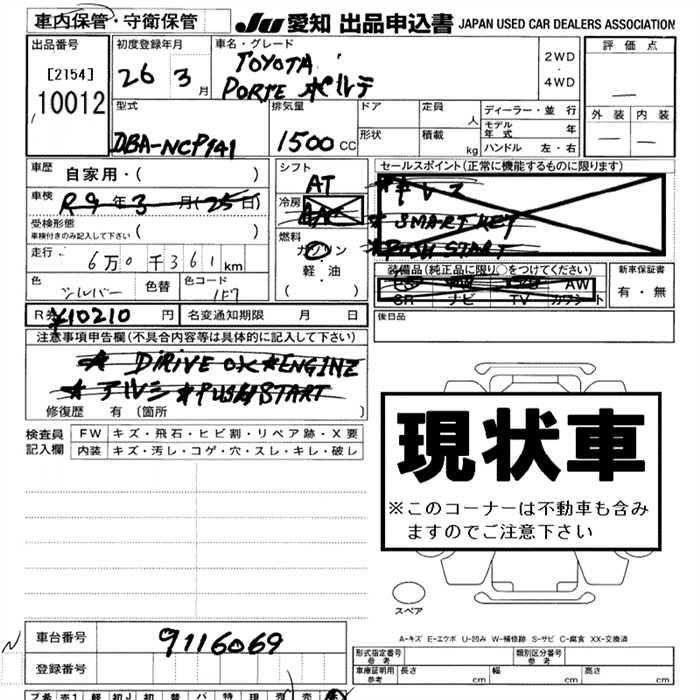 車内保管・守衛保管
JU 愛知 出品申込書 JAPAN USED CAR DEALERS ASSOCIATION
出品番号
[2154]
10012
初度登録年月
26 3月
車名・グレード
TOYOTA
PORTE ポルテ
2WD
4WD
評価点
外装 内装
型式
DBA-NCP141
排気量
1500 CC
ドア
形状
定員 人
積載 kg
ディーラー・並行
モデル年式 年
ハンドル 左・右
車歴 自家用・( )
車検 R9年3月(25日)
受検形態
車検付きのみ記入して下さい ( )
走行 6万0千361km
色 シルバー 色替 色コード 1F7
シフト
AT
冷房
AAC
燃料
ガソリン
軽・油
( )
セールスポイント(正常に機能するものに限ります)
★キレイ
★SMART KEY
★PUSH START
装備品(純正品に限り○をつけてください)
AW
SR ナビ TV カワシート
新車保証書
有・無
後日品
R券 ¥10210 円 名変通知期限 月 日
注意事項申告欄(不具合内容等は具体的に記入して下さい)
★ DIRIVE OK ★ENGINE
★ アルミ ★PUSH START
修復歴 有 (箇所 )
検査員記入欄
FW キズ・飛石・ヒビ割・リペア跡・X要
内装 キズ・汚レ・コゲ・穴・スレ・キレ・破レ
現状車
※このコーナーは不動車も含み
ますのでご注意下さい
スペア
A-キズ E-エクボ U-凹み W-補修跡 S-サビ C-腐食 XX-交換済
車台番号 9116069
登録番号
型式指定番号 参考
類別区分番号 参考
車庫証明用 参考 長さ cm 幅 cm 高さ cm